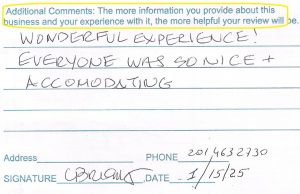 Additional Comments: The more information you provide about this
business and your experience with it, the more helpful your review will be.
WONDERFUL EXPERIENCE!
EVERYONE WAS SO NICE +
ACCOMODATING
Address PHONE 2014632730
SIGNATURE DATE 1/15/25